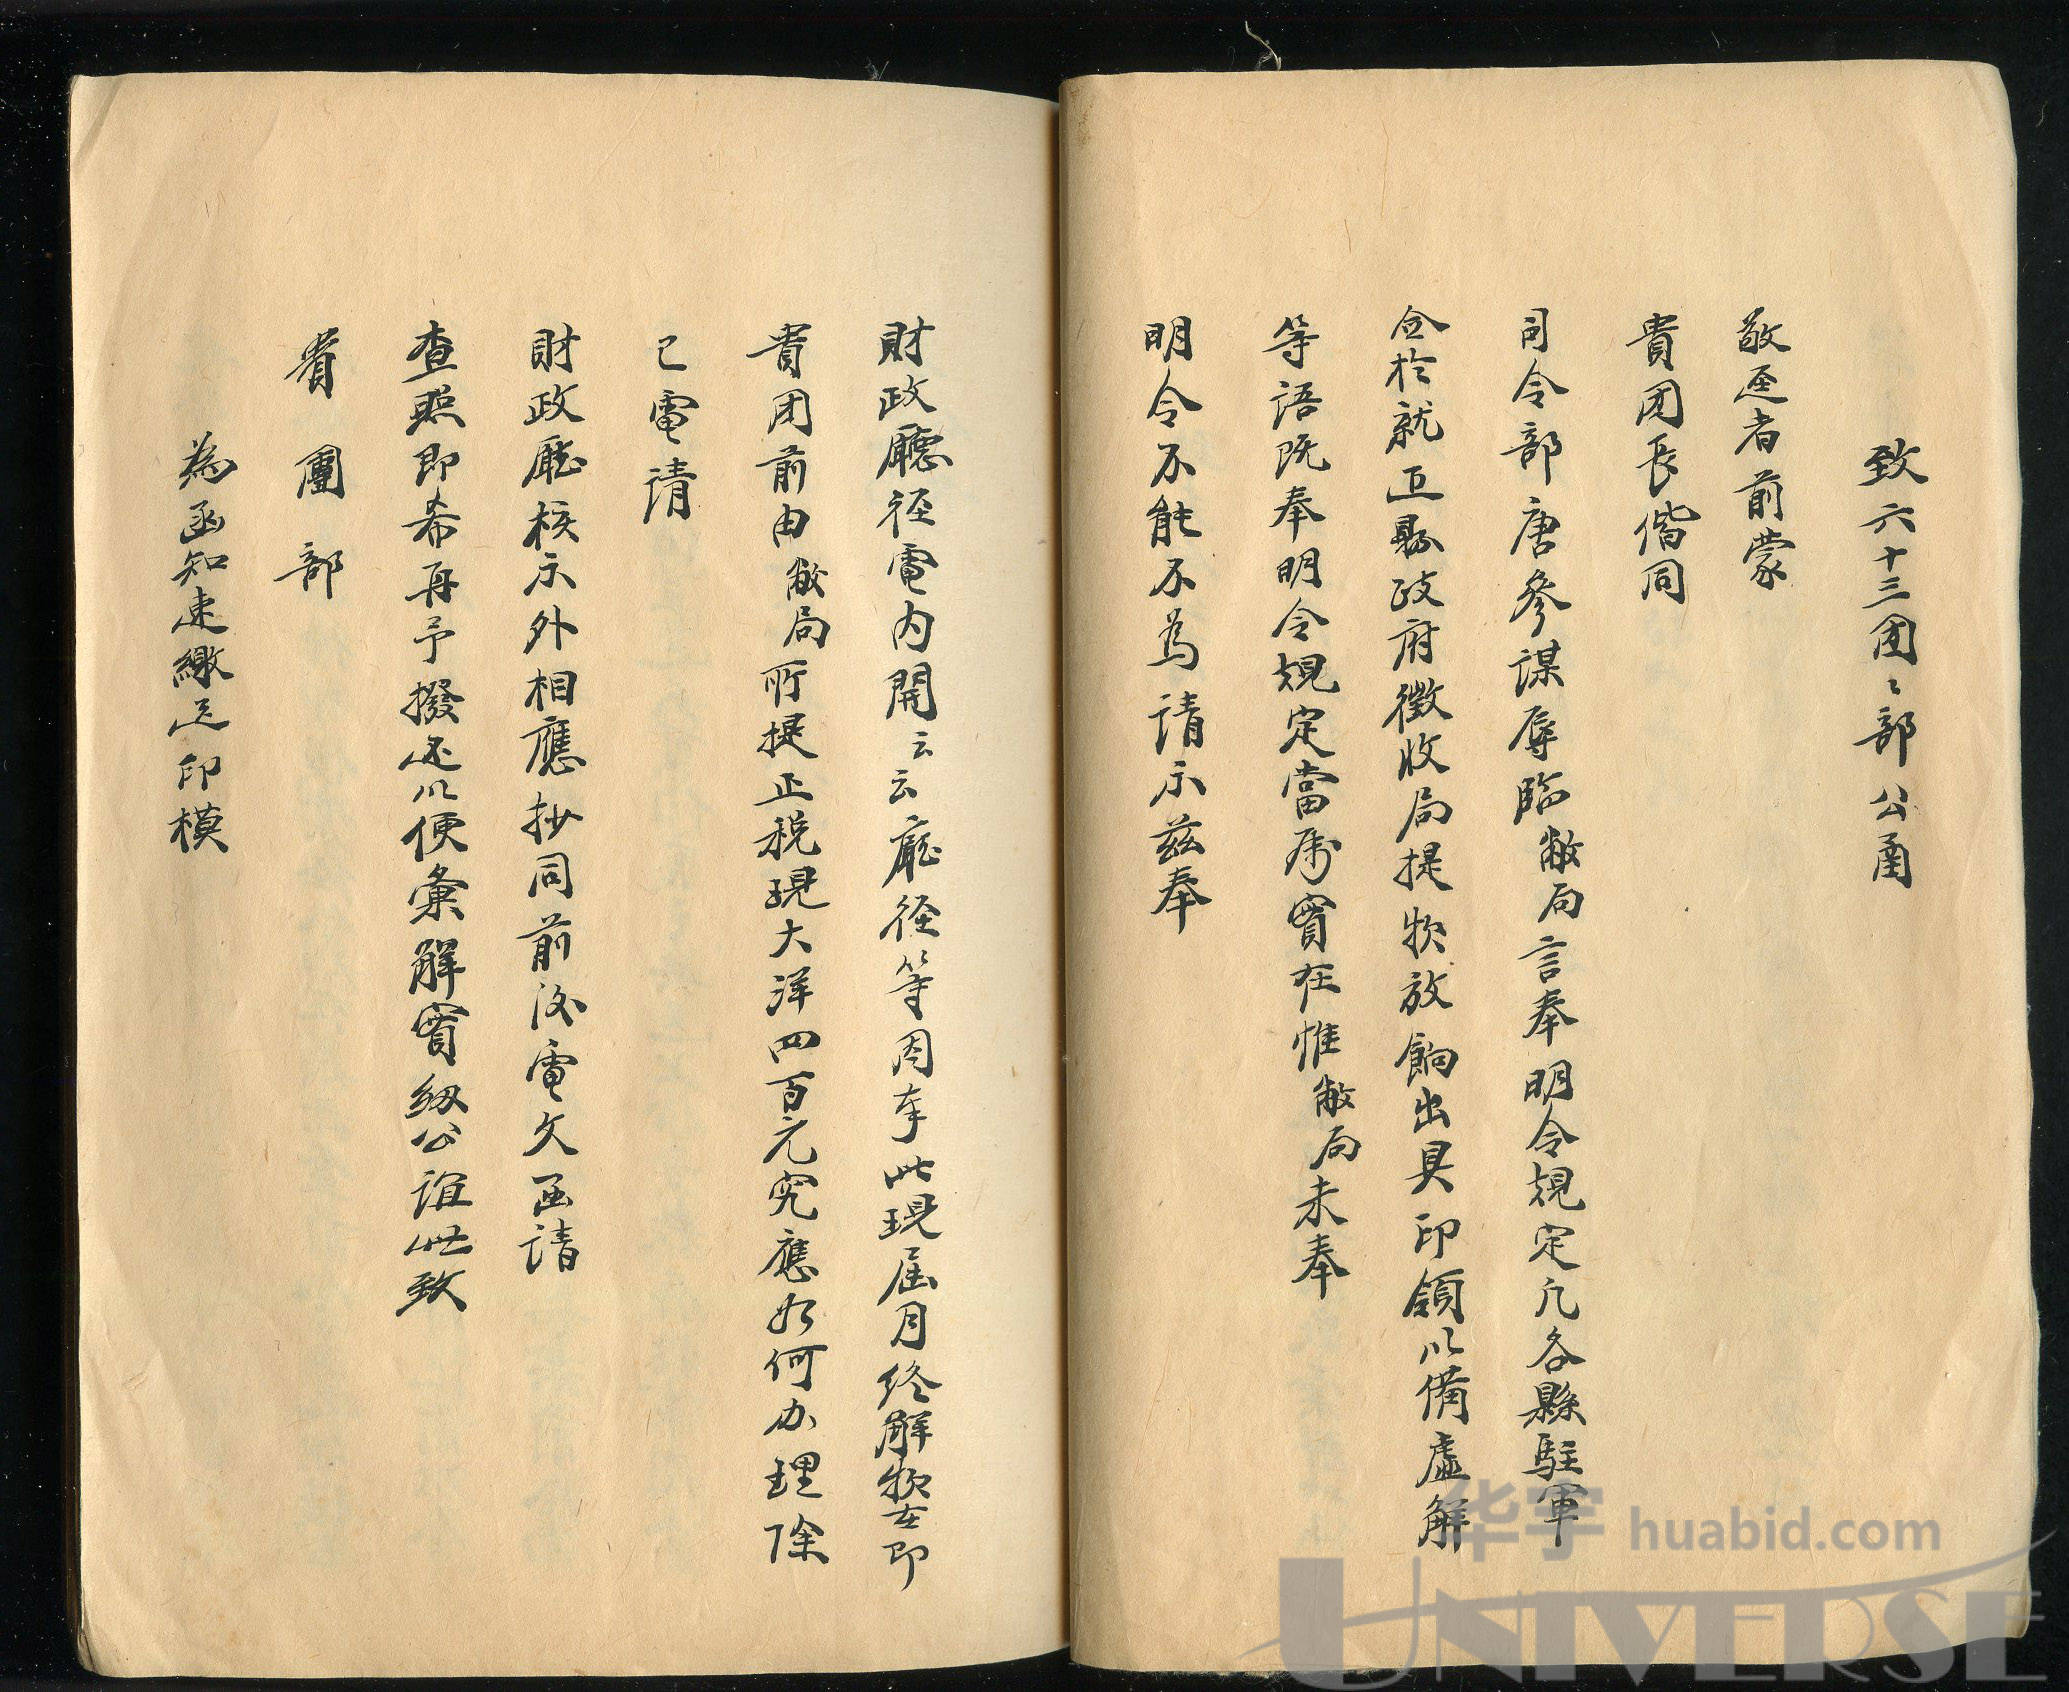 致六十三团〻部公函
敬逕者前蒙
貴团長偕同
司令部唐參謀辱臨敝局言奉明令規定凡各縣駐軍
仝於就正縣政府徵收局提欵放餉出具印領以備虛解
等語既奉明令規定當屬實在惟敝局未奉
明令不能不為請示茲奉
財政廳徑電內開云云廳徑等因奉此現屆月終解欵在即
貴团前由敝局所提正税現大洋四百元究應如何办理除
已電請
財政廳核示外相應抄同前後電文函請
查照即希再予撥还以便彙解實紉公誼此致
貴團部
為函知速繳正印模
华宇 huabid.com
UNIVERSE